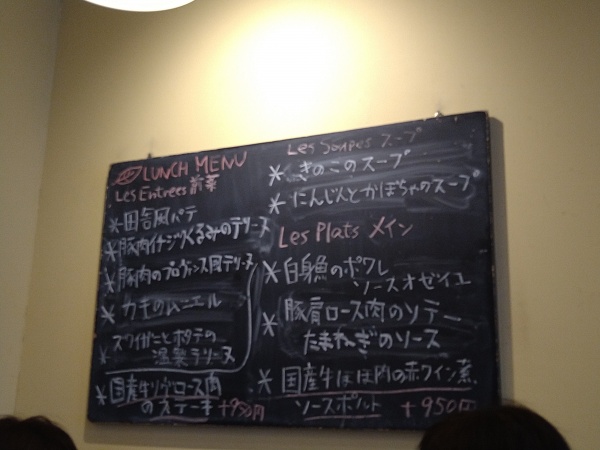 LUNCH MENU
Les Entrees 前菜
*田舎風パテ
*豚肉イチジクくるみのテリーヌ
*豚肉のプロヴァンス風テリーヌ
*カキのムニエル
*ズワイガニとポテトの
温製テリーヌ
*国産牛リヴロース肉
のステーキ+950円
Les Soupes スープ
*きのこのスープ
*にんじんとかぼちゃのスープ
Les Plats メイン
*白身魚のポワレ
ソースオゼイユ
*豚肩ロース肉のソテー
たまねぎのソース
*国産牛ほほ肉の赤ワイン煮
ソースポルト +950円